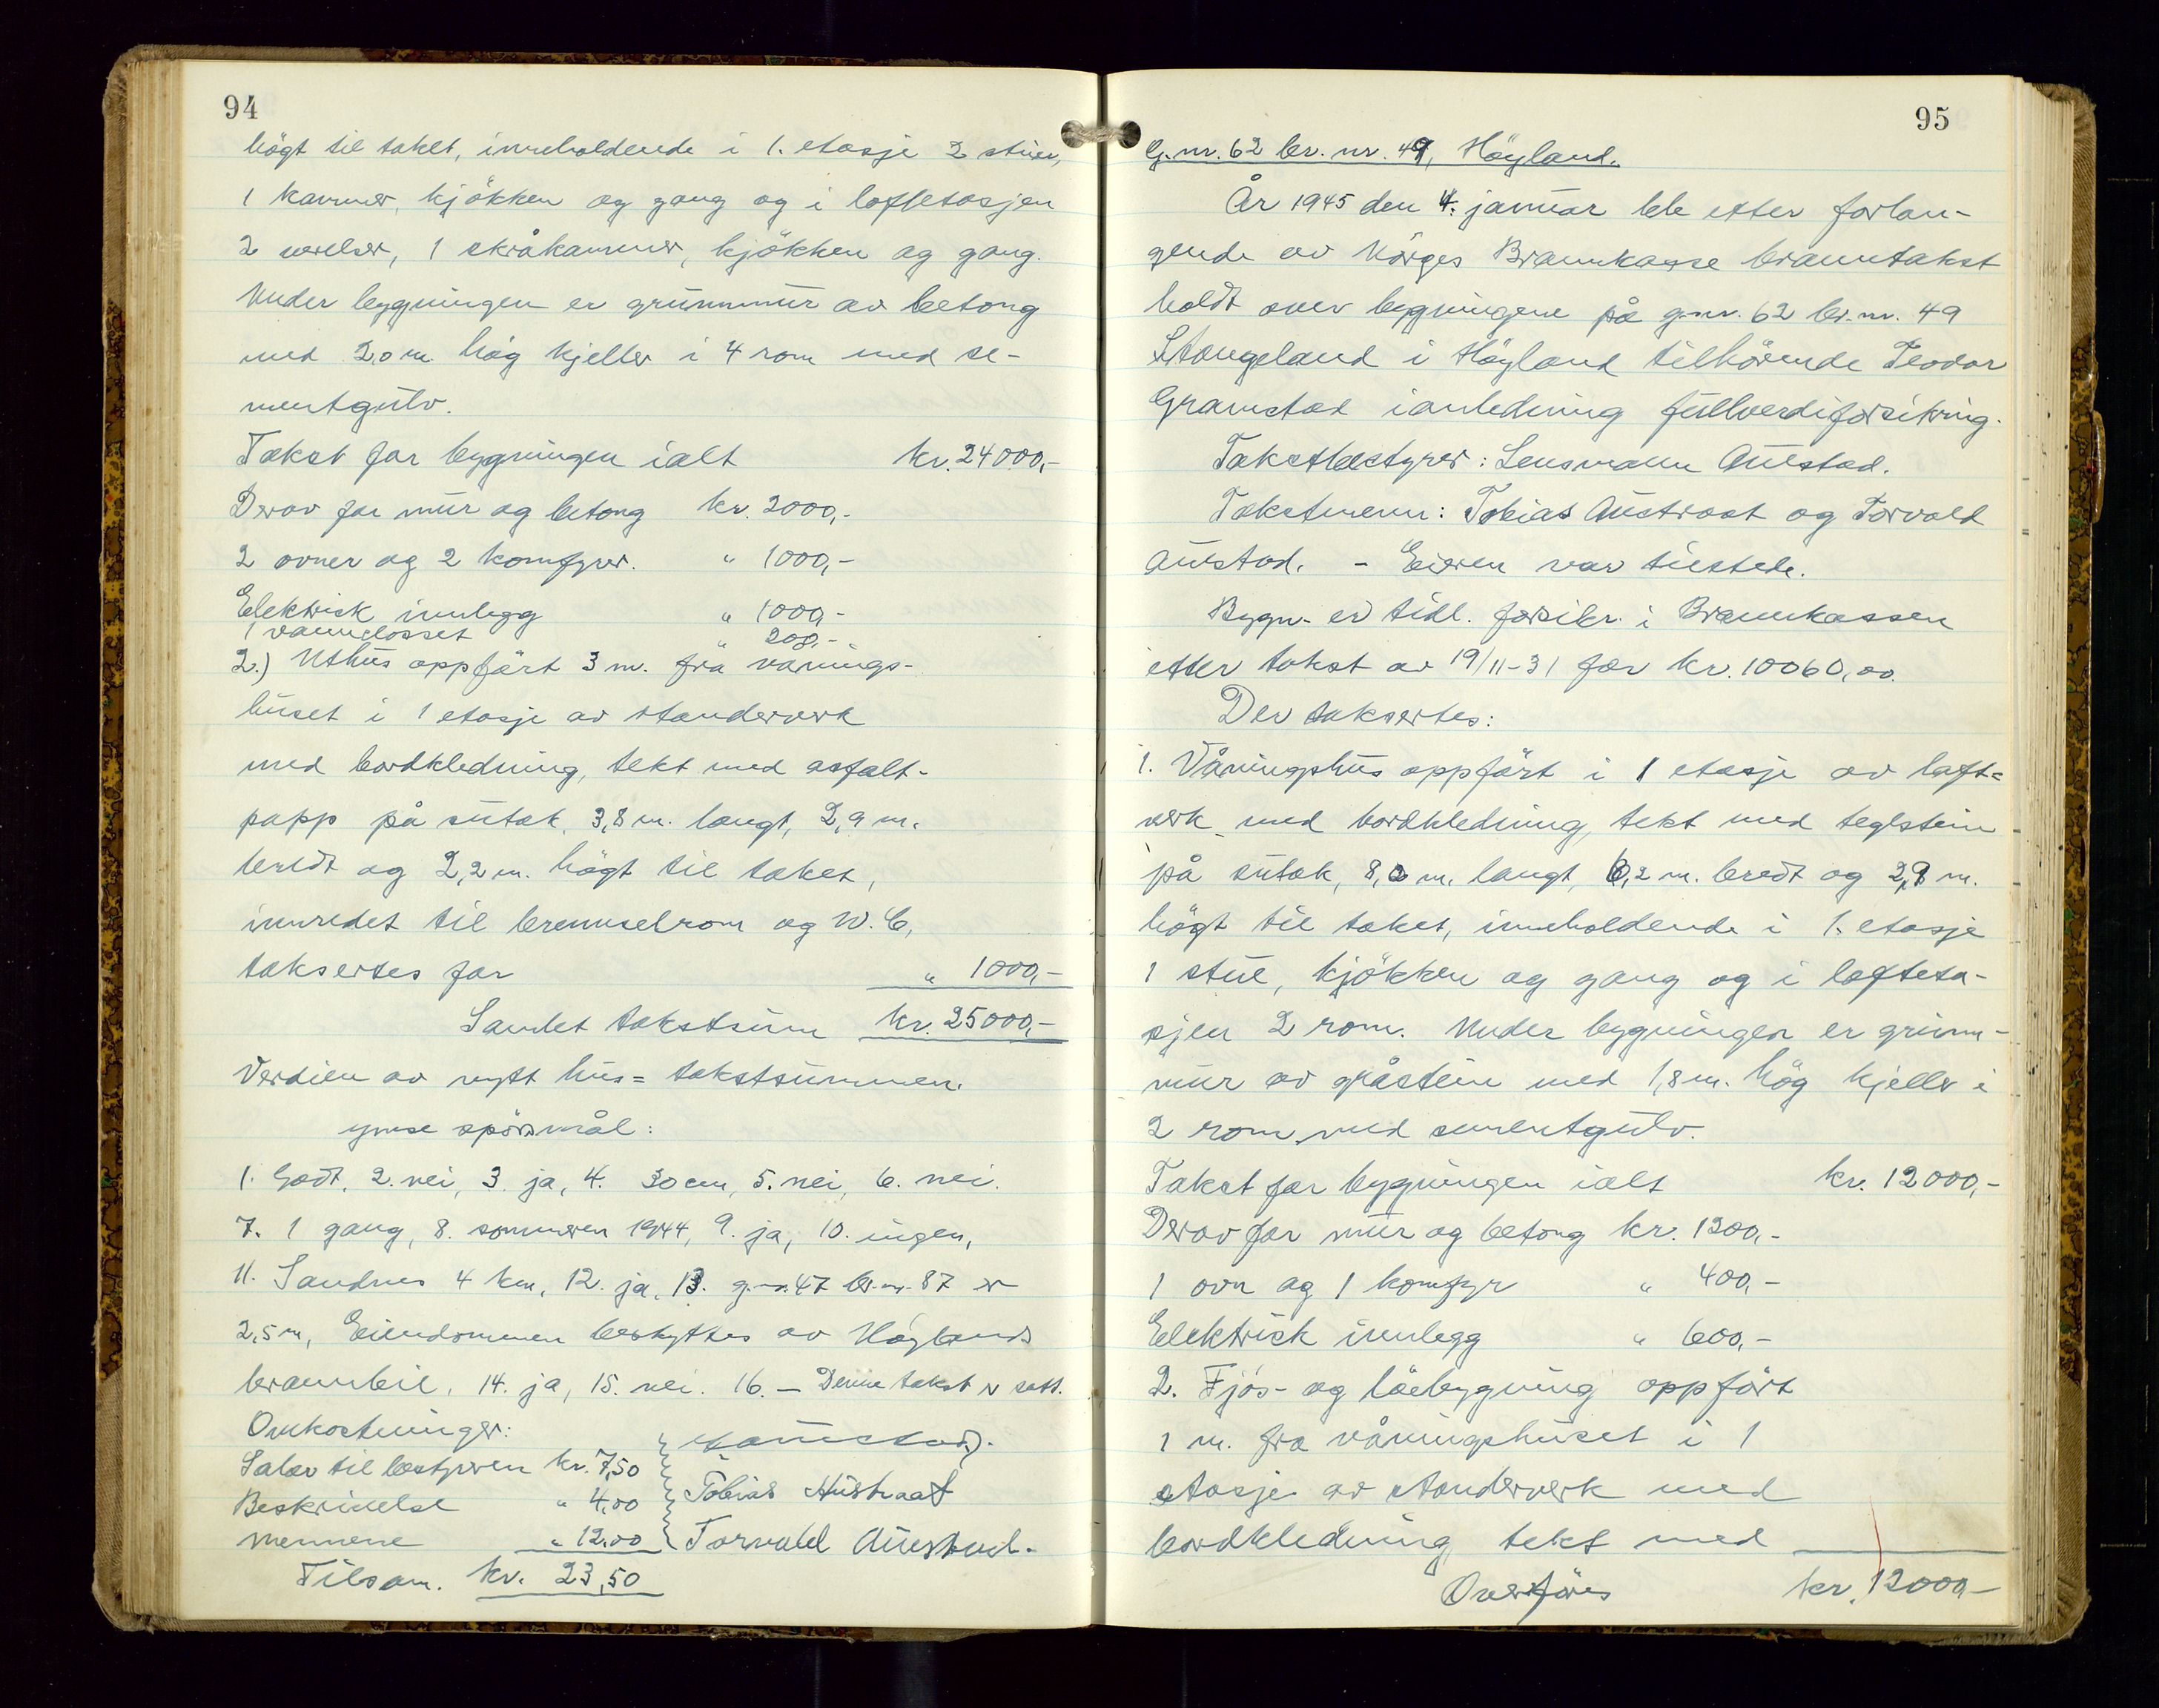 94
högt til taket, inneholdende i 1. etasje 2 stuer,
1 kammer, kjökken og gang og i loftetasjen
2 værelser, 1 skråkammer, kjökken og gang.
Under bygningen er grunnmur av betong
med 2,0 m. høg kjeller i 4 rom med se-
mentgulv.
Takst for bygningen ialt kr. 24000,-
Derav for mur og betong kr. 2000,-
2 ovner og 2 komfyrer. " 1000,-
Elektrisk innlegg " 1000,-
1 vannclosset " 200,-
2.) Uthus oppfört 3 m. fra vånings-
huset i 1 etasje av standerverk
med bordkledning, tekt med asfalt-
papp på sutak, 3,8 m. langt, 2,9 m.
bredt og 2,2 m. högt til taket,
innredet til brenselrom og W.C,
taksertes for " 1000,-
Samlet takstsum kr. 25000,-
Verdien av nytt hus = takstsummen.
ymse spörsmål:
1. Godt, 2. nei, 3. ja, 4. 30 cm, 5. nei, 6. nei.
7. 1 gang, 8. sommeren 1944, 9. ja, 10. ingen,
11. Sandnes 4 km, 12. ja, 13. g.nr. 47 br.nr. 87 er
2,5 m, Eiendommen beskyttes av Høylands
brannbil, 14. ja, 15. nei. 16. – Denne takst er satt.
Omkostninger:
Salær til bestyreren kr. 7,50
Beskrivelse " 4,00 Tobias Austraat
Mennene " 12,00 Torvald Aurstad.
Tilsam. kr. 23,50
95
G.nr. 62 br. nr. 49, Höyland.
År 1945 den 4. januar ble etter forlan-
gende av Norges Brannkasse branntakst
holdt over bygningene på g.nr. 62 br.nr. 49
Stangeland i Höyland tilhörende Teodor
Gramstad i anledning fullverdiforsikring.
Takstbestyrer: Lensmann Aurstad.
Takstmenn: Tobias Austraat og Torvald
Aurstad. - Eieren var tilstede.
Bygn. er tidl. forsikr. i Brannkassen
etter takst av 19/11-31 for kr. 10060,00.
Der taksertes:
1. Våningshus oppfört i 1 etasje av laft=
verk med bordkledning, tekt med teglstein
på sutak, 8,2 m. langt, 6,2 m. bredt og 2,8 m.
högt til taket, inneholdende i 1. etasje
1 stue, kjökken og gang og i lofteta-
sjen 2 rom. Under bygningen er grunn-
mur av gråstein med 1,8 m. høg kjeller i
2 rom med sementgulv.
Takst for bygningen ialt kr. 12000,-
Derav for mur og betong kr. 1200,-
1 ovn og 1 komfyr " 400,-
Elektrisk innlegg " 600,-
2. Fjös- og löebygning oppfört
1 m. fra våningshuset i 1
etasje av standerverk med
bordkledning tekt med
Overföres kr. 12000,-